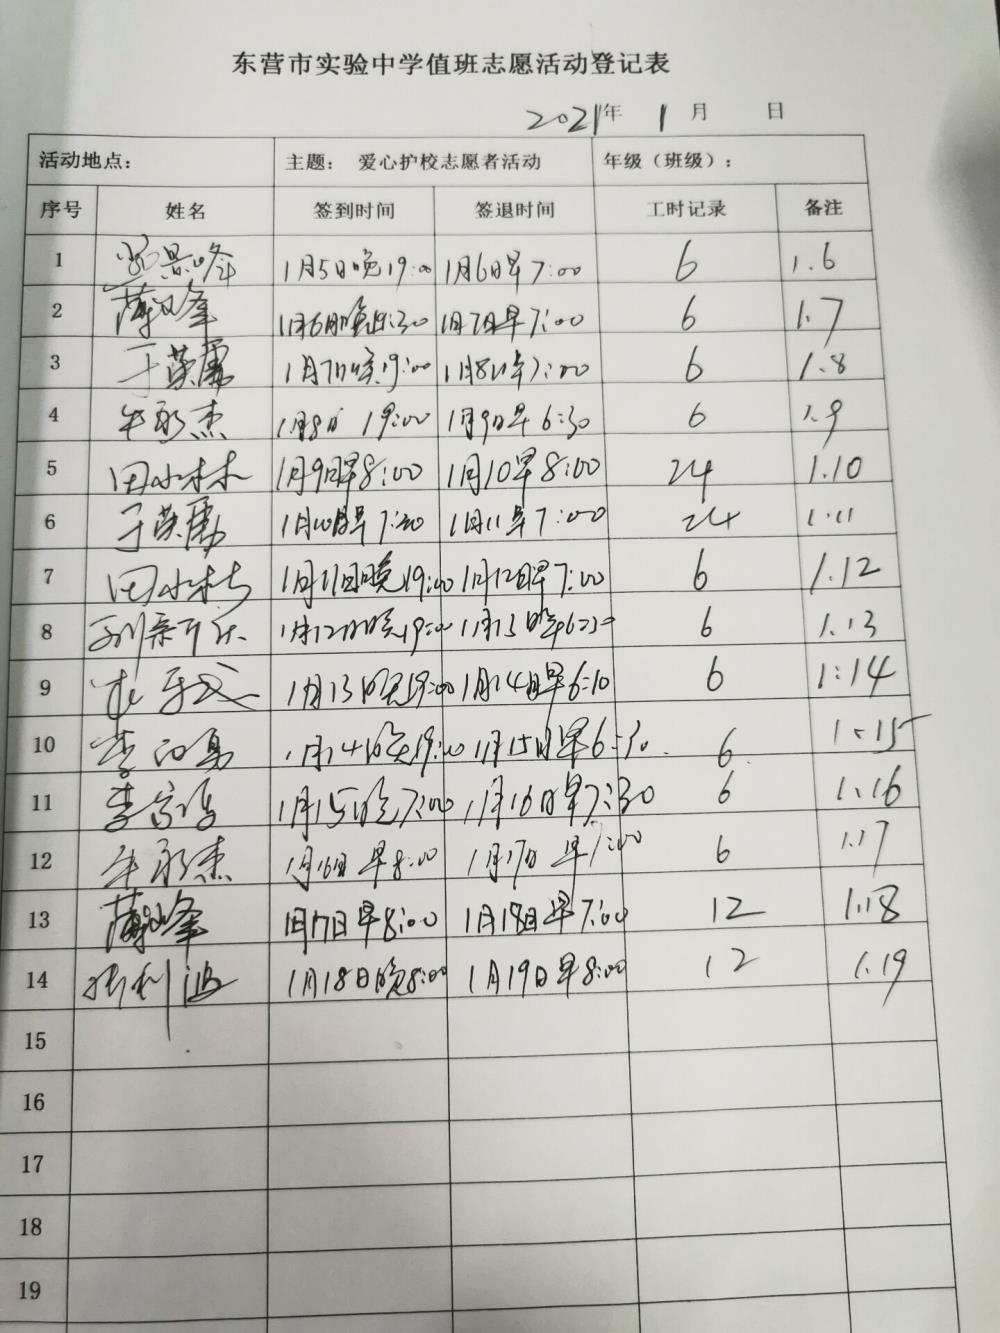 东营市实验中学值班志愿活动登记表
2021年 1月 日
活动地点： 主题： 爱心护校志愿者活动 年级（班级）：
序号 姓名 签到时间 签退时间 工时记录 备注
1 1月5日晚19:00 1月6日早7:00 6 1.6
2 薄 峰 1月6日晚 :30 1月7日早7:00 6 1.7
3 于荣勇 1月7日晚19:00 1月8日早7:00 6 1.8
4 牛永杰 1月8日 19:00 1月9日早6:30 6 1.9
5 田水林 1月9日早8:00 1月10早8:00 24 1.10
6 于荣勇 1月10日早7:30 1月11早7:00 24 1.11
7 田水林 1月11日晚19:00 1月12日早7:00 6 1.12
8 1月12日晚19:00 1月13日 6:30 6 1.13
9 1月13日晚19:00 1月14日早6:10 6 1:14
10 李 1月14日晚19:00 1月15日早6:30. 6 1.15
11 李 1月15日晚7:00 1月16日早7:30 6 1.16
12 牛永杰 1月16日早8:00 1月17日早7:00 6 1.17
13 薄 峰 1月17日早8:00 1月18日早7:00 12 1.18
14 利 1月18日晚8:00 1月19日早8:00 12 1.19
15
16
17
18
19